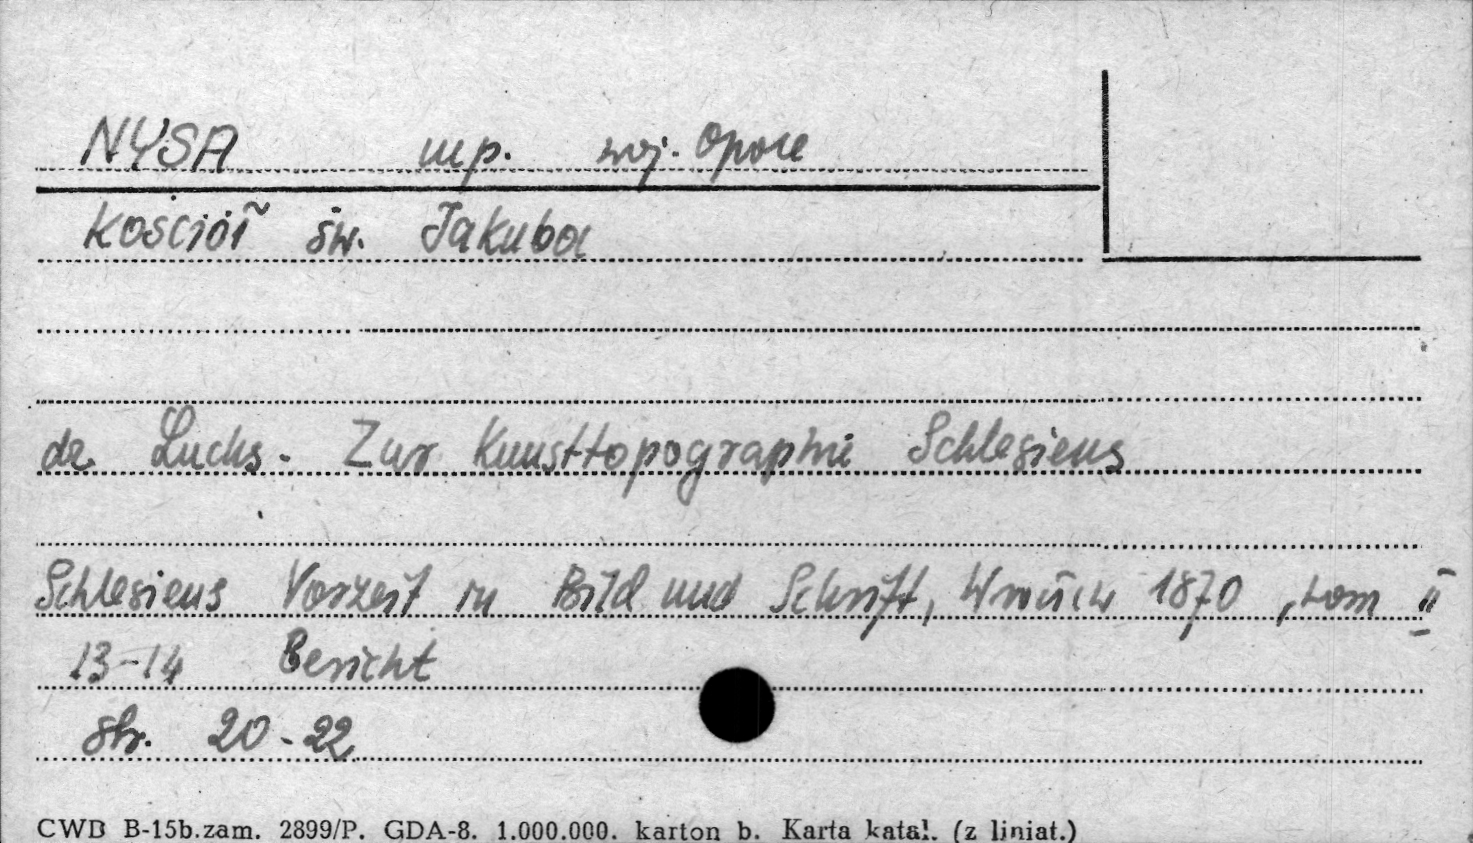 NYSA mp. woj. Opole
Kościół św. Jakuba
dr Luchs. Zur Kunsttopographi Schlesiens
Schlesiens Vorzeit in Bild und Schrift, 1870, tom II
13-14 Bericht
str. 20-22
CWD B-15b.zam. 2899/P. GDA-8. 1.000.000. karton b. Karta katal. (z liniat.)